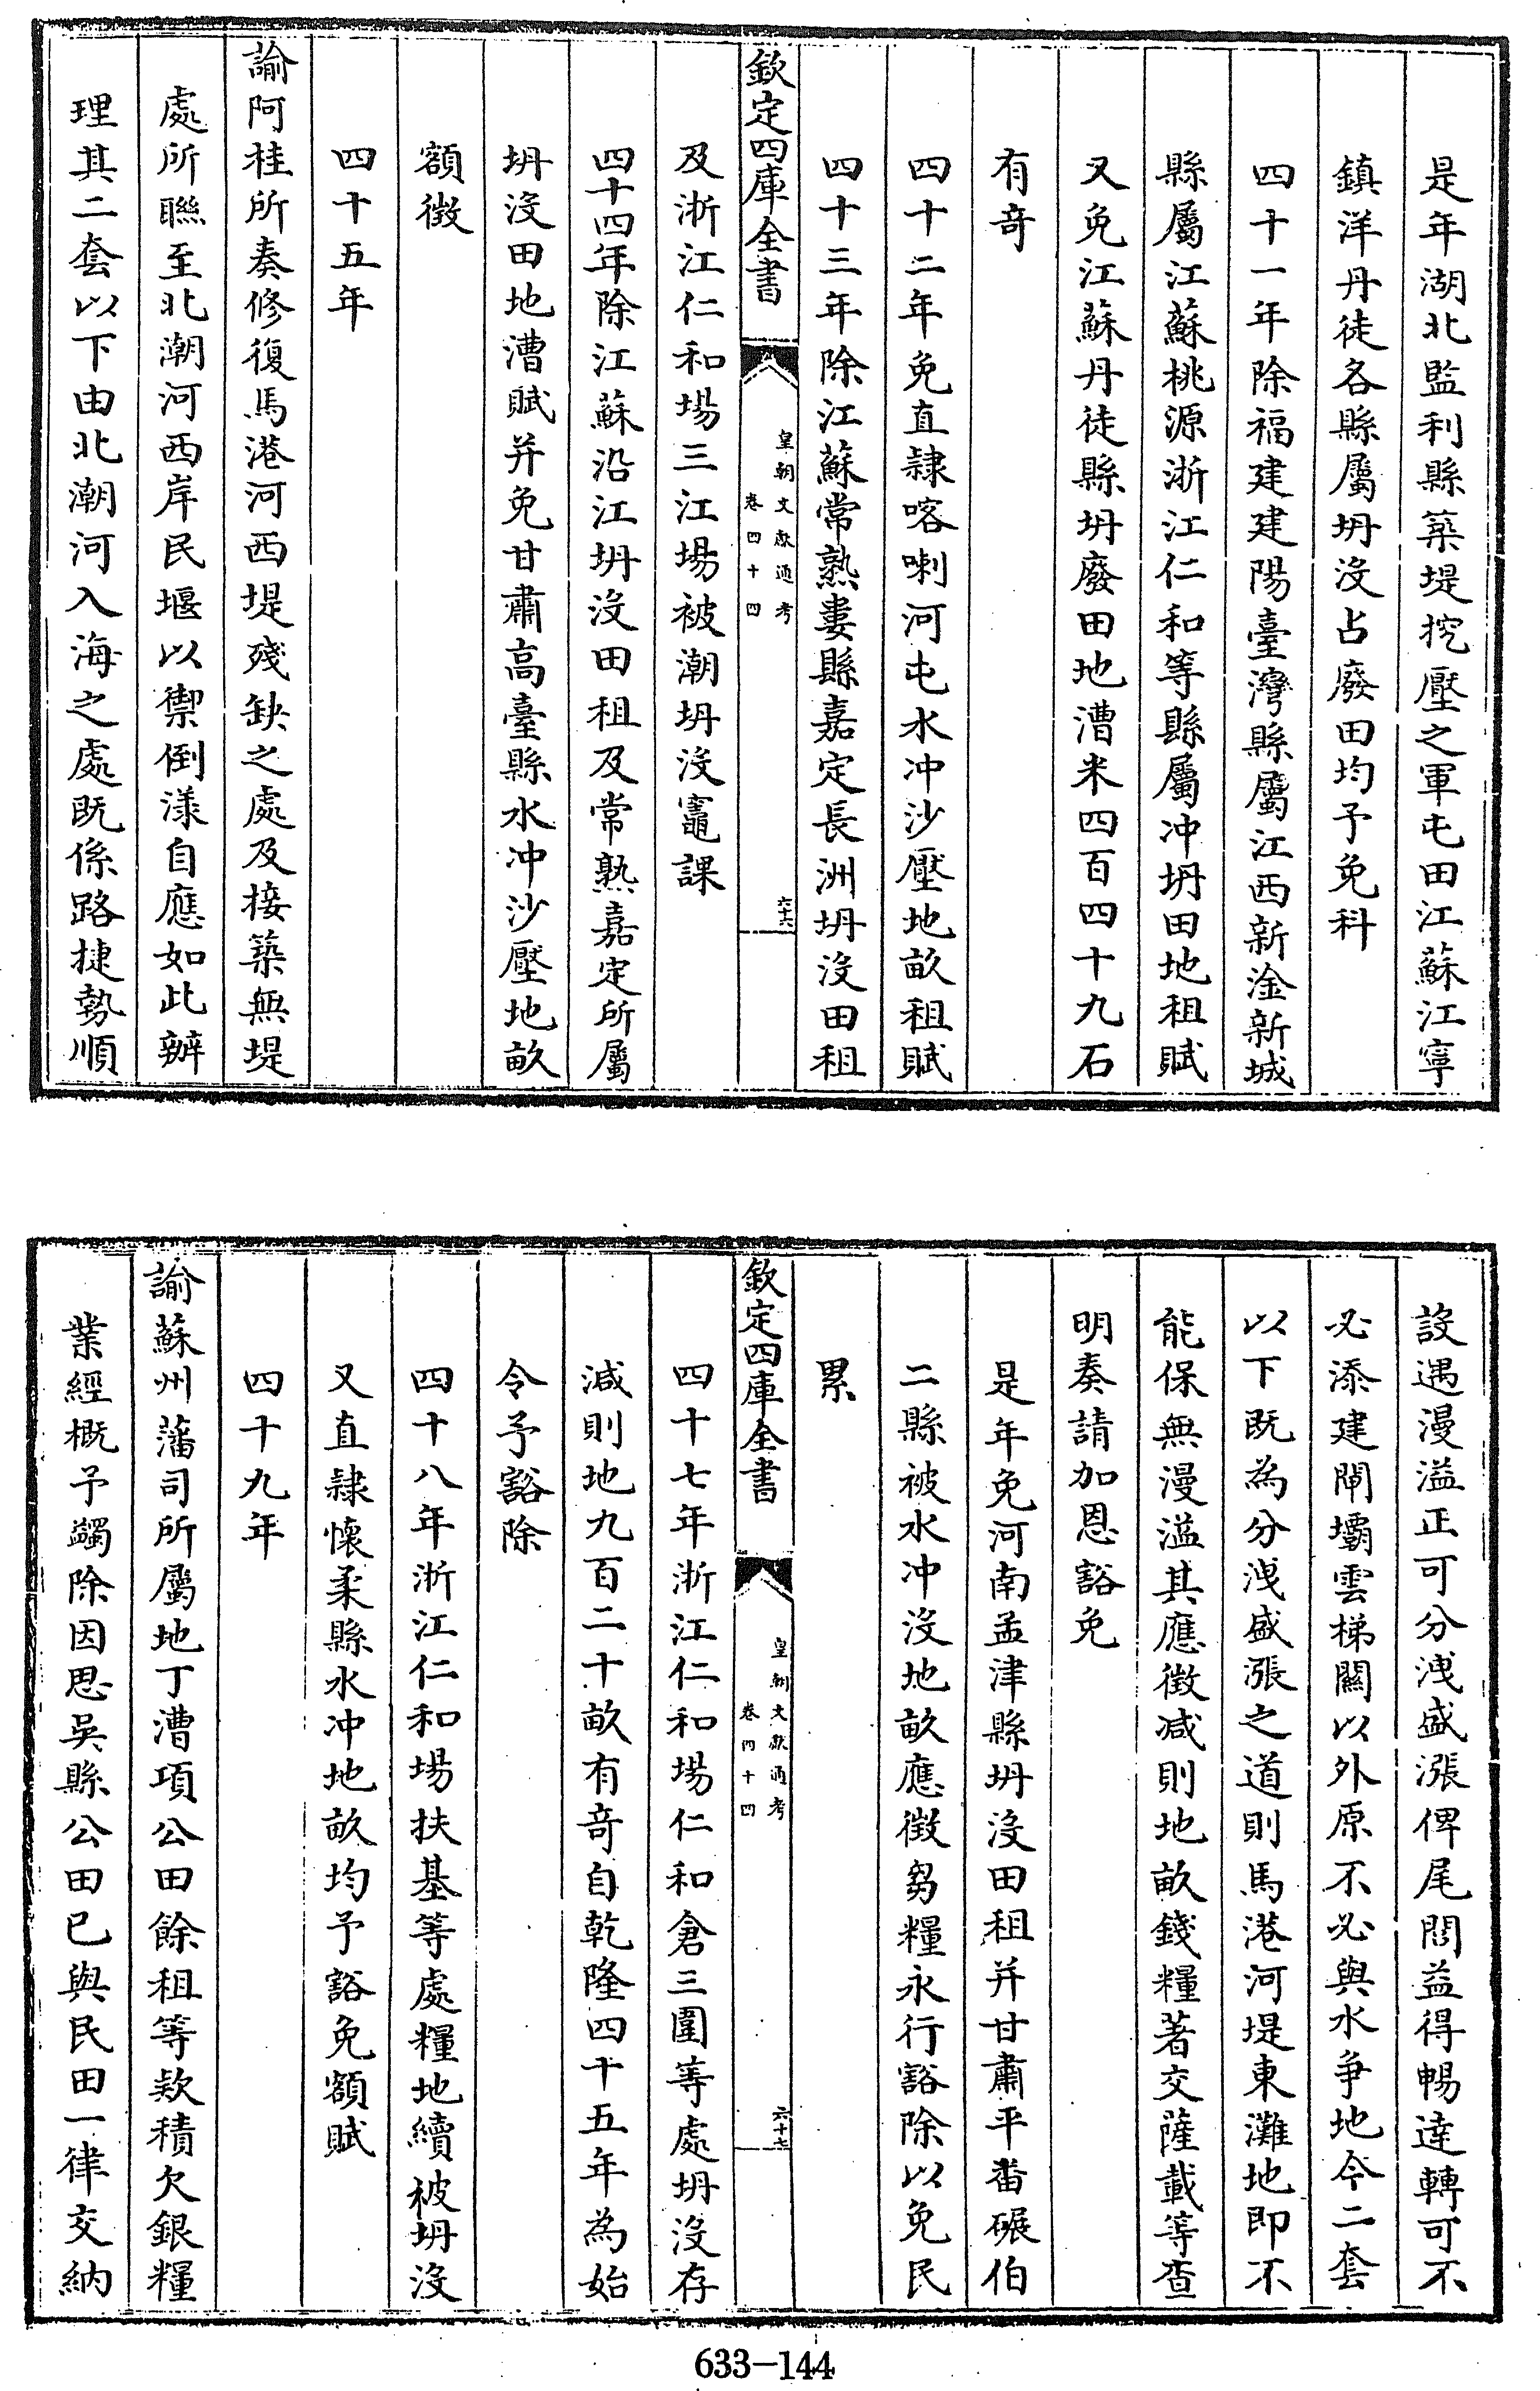 是年湖北監利縣築堤挖壓之軍屯田江蘇江寧
鎮洋丹徒各縣屬坍没占廢田均予免科
四十一年除福建建陽臺灣縣屬江西新淦新城
縣屬江蘇桃源浙江仁和等縣屬冲坍田地租賦
又免江蘇丹徒縣坍廢田地漕米四百四十九石
有奇
四十二年免直隷喀喇河屯水冲沙壓地畝租賦
四十三年除江蘇常熟婁縣嘉定長洲坍没田租
欽定四庫全書
皇朝文獻通考
卷四十四
六十六
及浙江仁和場三江場被潮坍没竈課
四十四年除江蘇沿江坍没田租及常熟嘉定所屬
坍没田地漕賦并免甘肅高臺縣水冲沙壓地畝
額徴
四十五年
諭阿桂所奏修復馬港河西堤殘缺之處及接築無堤
處所聯至北潮河西岸民堰以禦倒漾自應如此辦
理其二套以下由北潮河入海之處既係路捷勢順
設遇漫溢正可分洩盛漲俾尾閭益得暢達轉可不
必添建閘壩雲梯關以外原不必與水争地今二套
以下既為分洩盛漲之道則馬港河堤東灘地即不
能保無漫溢其應徴减則地畝錢糧著交薩載等查
明奏請加恩豁免
是年免河南孟津縣坍没田租并甘肅平番碾伯
二縣被水冲没地畝應徴芻糧永行豁除以免民
累
欽定四庫全書
皇朝文獻通考
卷四十四
六十七
四十七年浙江仁和場仁和倉三圍等處坍没存
减則地九百二十畝有奇自乾隆四十五年為始
令予豁除
四十八年浙江仁和場扶基等處糧地續被坍没
又直隷懷柔縣水冲地畝均予豁免額賦
四十九年
諭蘇州藩司所屬地丁漕項公田餘租等欵積欠銀糧
業經概予蠲除因思吳縣公田已與民田一律交納
633-144